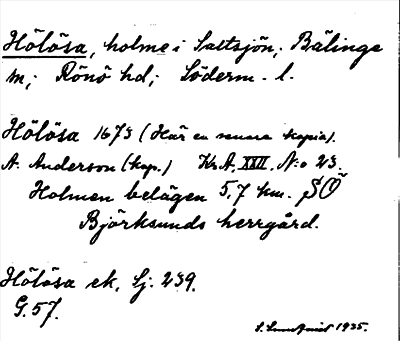 Hölösa, holme i Saltsjön; Bälinge
m; Rönö hd; Söderm. l.
Hölösa 1673 (Här en senare kopia).
A. Anderson (kop.) Kr.A. XXII. N:o 23.
Holmen belägen 5,7 km. SÖ
Björksunds herrgård.
Hölösa ek, Sj. 239.
G. 57.
S. Lundqvist 1935.